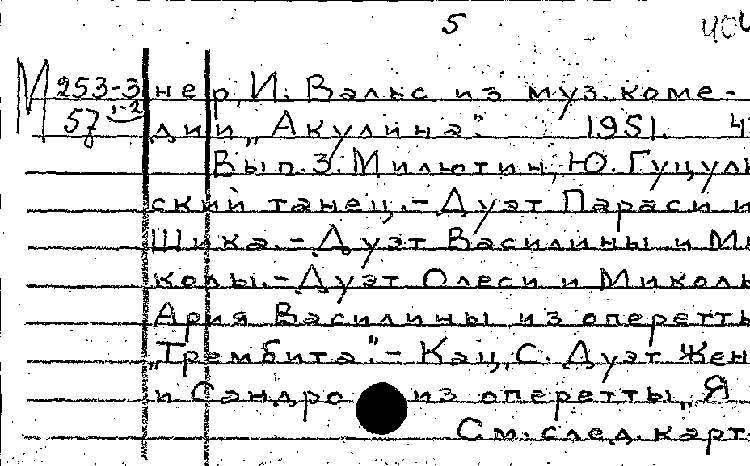 5
М 253-3 нер, И. Вальс из муз. коме-
57 1-2 дии „Акулина". 1951. 4
Вып. 3. Милютин, Ю. Гуцуль
ский танец. - Дуэт Параси и
Шика. - Дуэт Василины и Ми
колы. - Дуэт Олеси и Миколы
Ария Василины из оперетты
„Трембита". - Кац, С. Дуэт Жен
и Сандро из оперетты „Я
См. след. карт